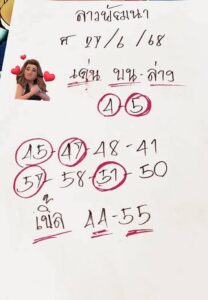 ลาวพัฒนา
ศ 27/6/68
เด่น บน-ล่าง
4-5
45-47-48-41
57-58-51-50
เบิ้ล 44-55